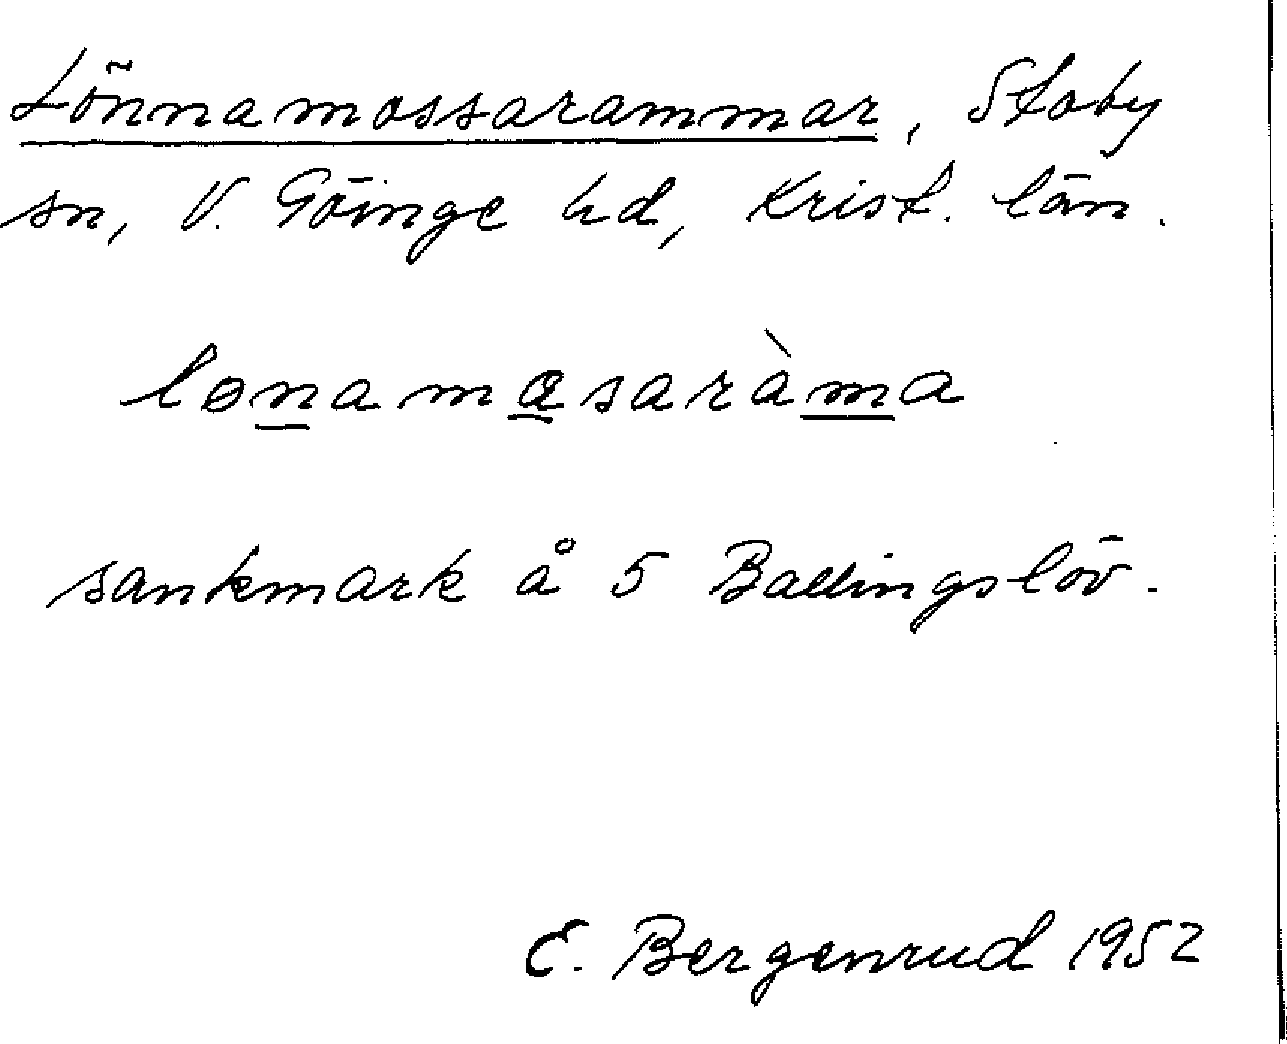 Lönnamossarammar, Stoby
sn, V. Göinge hd, Krist. län.
lønamɑsaràma
sankmark å 5 Ballingslöv.
E. Bergenrud 1952